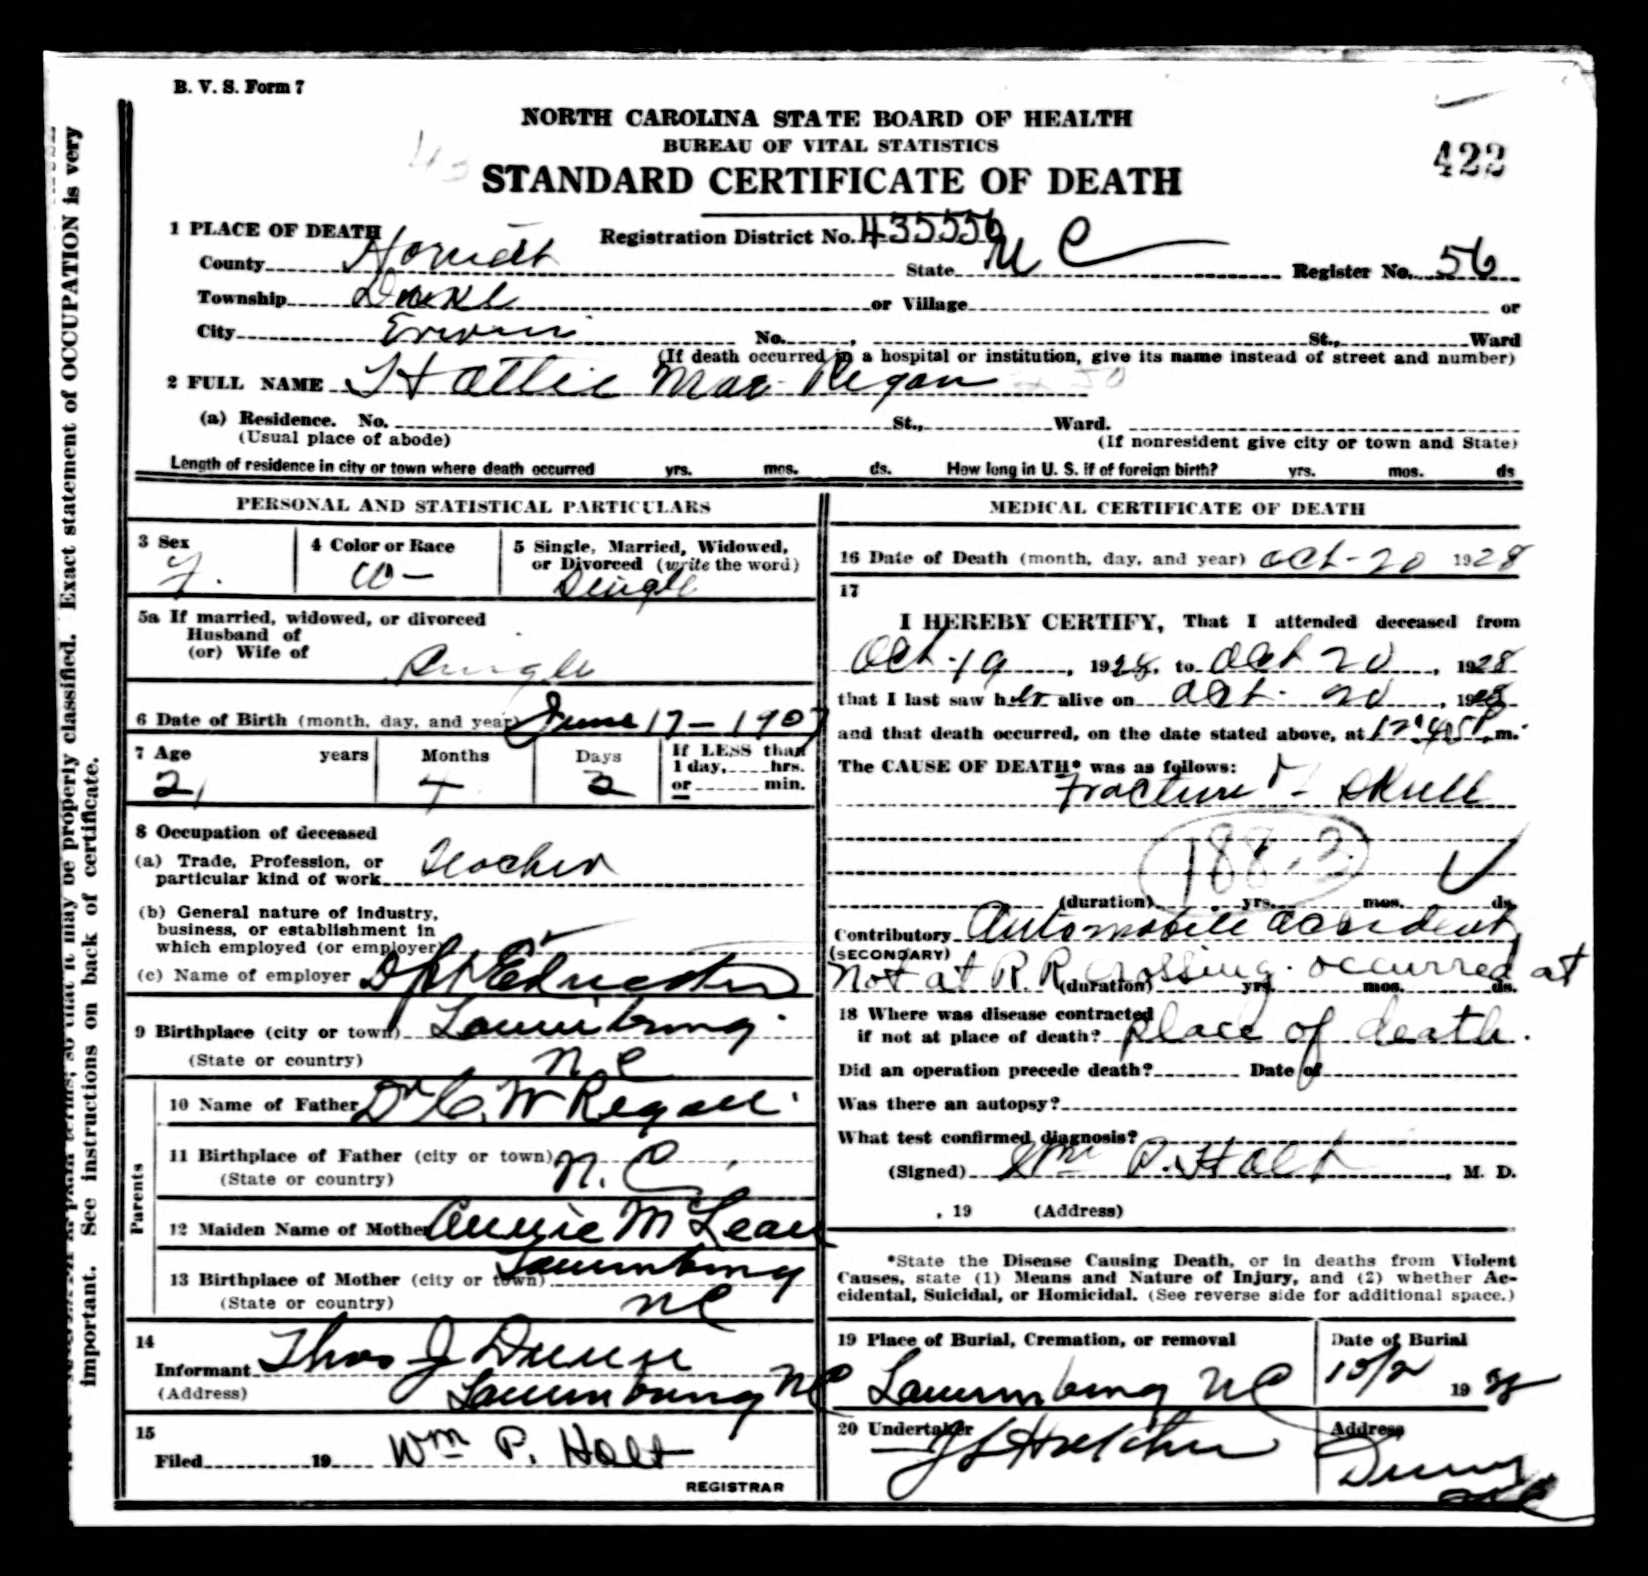 B. V. S. Form 7
NORTH CAROLINA STATE BOARD OF HEALTH
BUREAU OF VITAL STATISTICS
422
STANDARD CERTIFICATE OF DEATH
1 PLACE OF DEATH
Registration District No. 435556
County Harnett State N C Register No. 56
Township Duke or Village or
City Erwin No. , St., Ward
(If death occurred in a hospital or institution, give its name instead of street and number)
2 FULL NAME Hattie Mae Regan
(a) Residence. No. St., Ward.
(Usual place of abode) (If nonresident give city or town and State)
Length of residence in city or town where death occurred yrs. mos. ds. How long in U. S. if of foreign birth? yrs. mos. ds
PERSONAL AND STATISTICAL PARTICULARS
3 Sex 4 Color or Race 5 Single, Married, Widowed,
or Divorced (write the word)
F. W- Single
5a If married, widowed, or divorced
Husband of
(or) Wife of
Single
6 Date of Birth (month, day, and year) June 17 - 1907
7 Age years Months Days If LESS than
1 day, hrs.
or min.
21 4 3
8 Occupation of deceased
(a) Trade, Profession, or
particular kind of work Teacher
(b) General nature of industry,
business, or establishment in
which employed (or employer)
(c) Name of employer Education
9 Birthplace (city or town) Laurinburg.
(State or country) N C
Parents
10 Name of Father Dr C. W Regan
11 Birthplace of Father (city or town) N. C.
(State or country)
12 Maiden Name of Mother Annie McLean
13 Birthplace of Mother (city or town) Laurinburg
(State or country) N C
14
Informant Thos J Dunn
(Address) Laurinburg N C
15
Filed 19 Wm P. Holt
REGISTRAR
MEDICAL CERTIFICATE OF DEATH
16 Date of Death (month, day, and year) Oct-20 1928
17
I HEREBY CERTIFY, That I attended deceased from
Oct-19, 1928, to Oct 20, 1928
that I last saw her alive on Oct. 20, 1928
and that death occurred, on the date stated above, at 12:45 P. m.
The CAUSE OF DEATH* was as follows:
Fracture of Skull
188.3
(duration) yrs. mos. ds.
Contributory Automobile accident
(SECONDARY)
not at R. R. Crossing. occurred at
(duration) yrs. mos. ds.
18 Where was disease contracted
if not at place of death? place of death.
Did an operation precede death? Date of
Was there an autopsy?
What test confirmed diagnosis?
(Signed) Wm P. Holt, M. D.
, 19 (Address)
*State the Disease Causing Death, or in deaths from Violent
Causes, state (1) Means and Nature of Injury, and (2) whether Ac-
cidental, Suicidal, or Homicidal. (See reverse side for additional space.)
19 Place of Burial, Cremation, or removal Date of Burial
Laurinburg N C 10/2 1928
20 Undertaker Address
Dunn
N C
important. See instructions on back of certificate.
may be properly classified. Exact statement of OCCUPATION is very